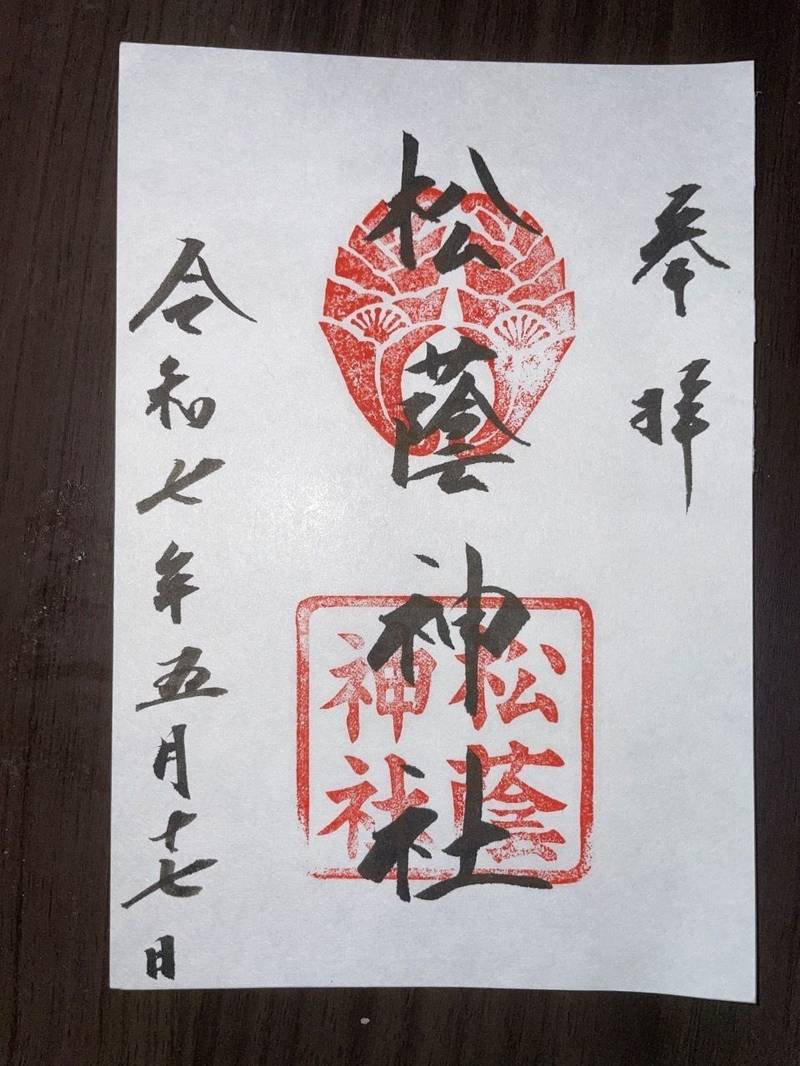 奉拝
松蔭神社
松蔭
神社
令和七年五月十七日